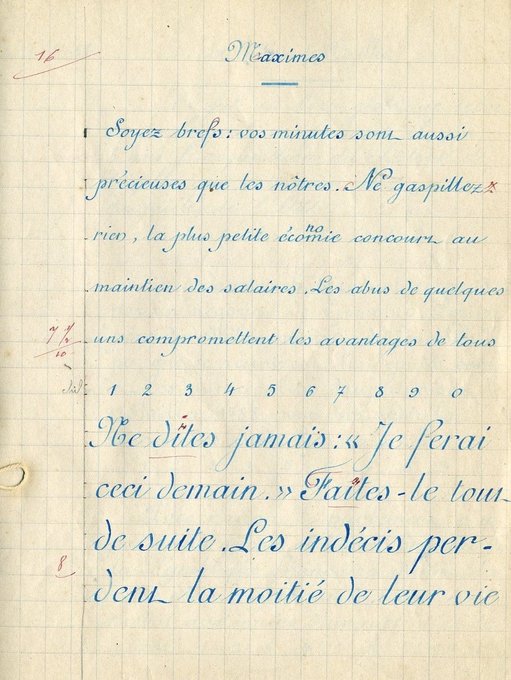 16
Maximes
Soyez brefs : vos minutes sont aussi
précieuses que les nôtres. Ne gaspillez
rien, la plus petite économie concourt au
maintien des salaires. Les abus de quelques
uns compromettent les avantages de tous
7 1/2
10
1 2 3 4 5 6 7 8 9 0
Ne dites jamais : « Je ferai
ceci demain. » Faîtes-le tout
de suite. Les indécis per-
8
dent la moitié de leur vie